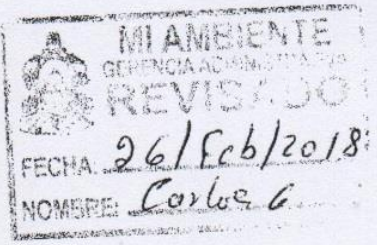 MI AMBIENTE
GERENCIA ADMINISTRATIVA
REVISADO
FECHA: 26/Feb/2018
NOMBRE: Carlos G